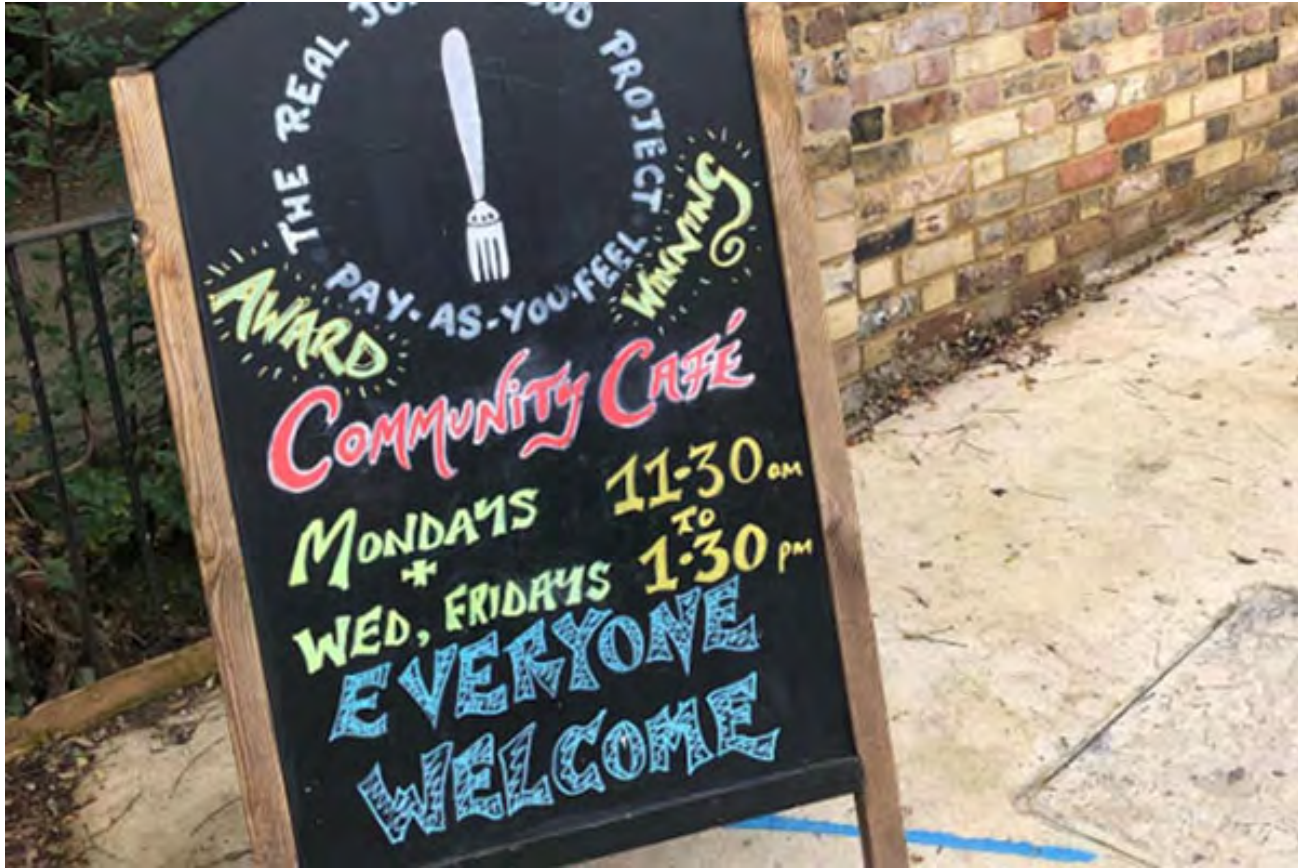 THE REAL
PROJECT
PAY-AS-YOU-FEEL
AWARD
WINNING
COMMUNITY CAFÉ
MONDAYS
+
WED, FRIDAYS
11-30 am
TO
1·30 pm
EVERYONE
WELCOME